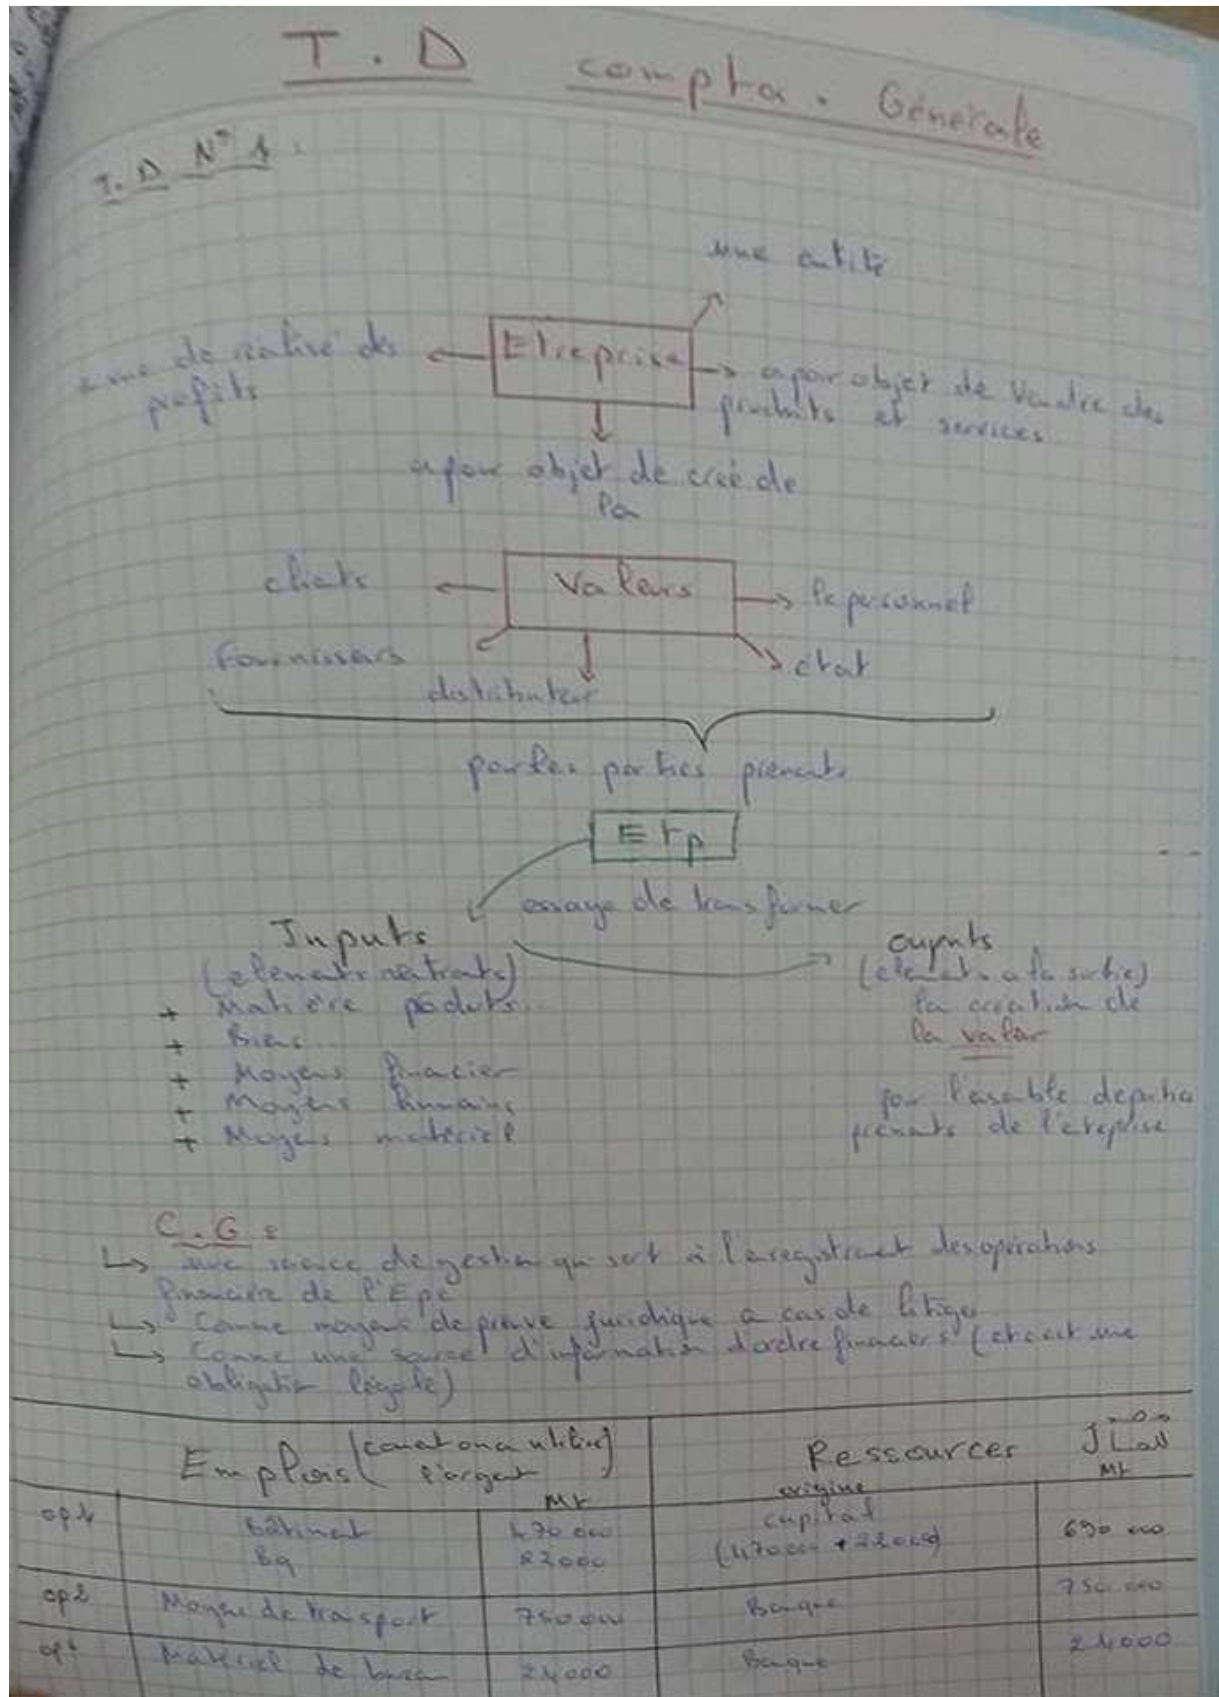 T.D compta. Générale
T.D N° 1 :
une entité
Etreprise
de réalisé des
profits
a pour objet de Vendre des
produits et services
a pour objet de créé de
la
Valeurs
clients
le personnel
Fournissers
état
distributeur
par les parties prenants
Etp
essaye de transformer
Inputs
(elements rentrants)
+ Matière produts...
+ Biens...
+ Moyens financier
+ Moyens humains
+ Moyens matériel
ouputs
(elements a la sortie)
la création de
la valeur
pour l'ensemble de parties
prenants de l'etreprise
C.G :
↳ une science de gestion qui sert à l'enregistrement des opérations
financière de l'Epe
↳ Comme moyens de preuve juridique a cas de litige
↳ Comme une source d'information d'ordre financiers (et c'est une
obligation légale)
Emplois (comment on a utilisé
l'argent)
Mt
Ressources
origine
Mt
op 1 Bâtiment 470 000
Bq
capital
690 000
op 2 Moyens de transport 750 000 Banque 750 000
Matériel de bureau 24000 Banque 24000